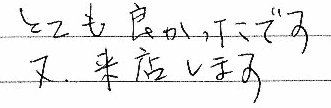 とても良かったです
又、来店します